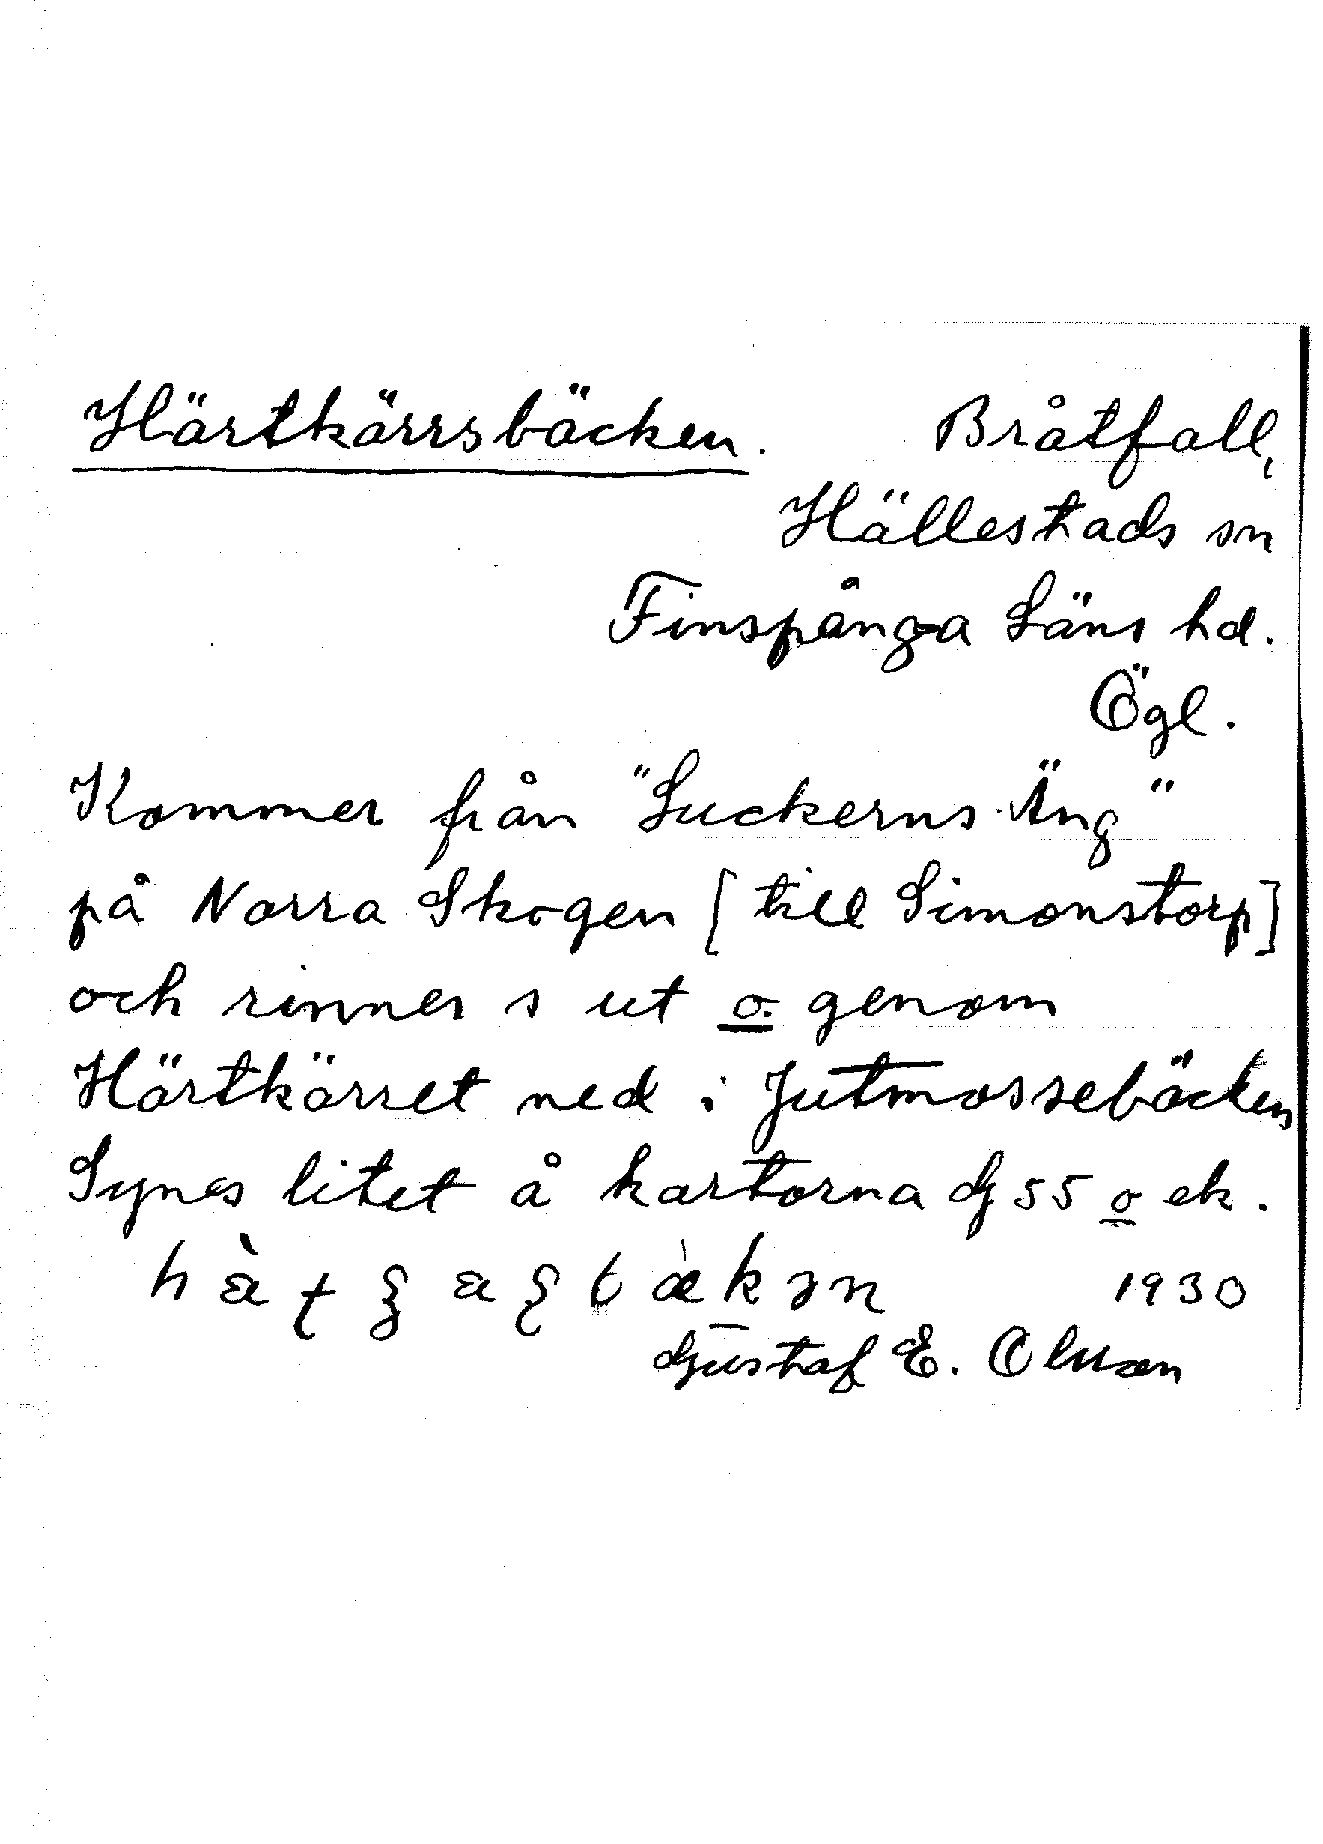 Härtkärrsbäcken. Bråtfall,
Hällestads sn
Finspånga Läns hd.
Ögl.
Kommer från "Luckerns Äng"
på Norra Skogen [till Simonstorp]
och rinner s ut o. genom
Härtkärret ned i Jutmossebäcken
Synes litet å kartorna G 55 o ek.
1930
Gustaf E. Olsson